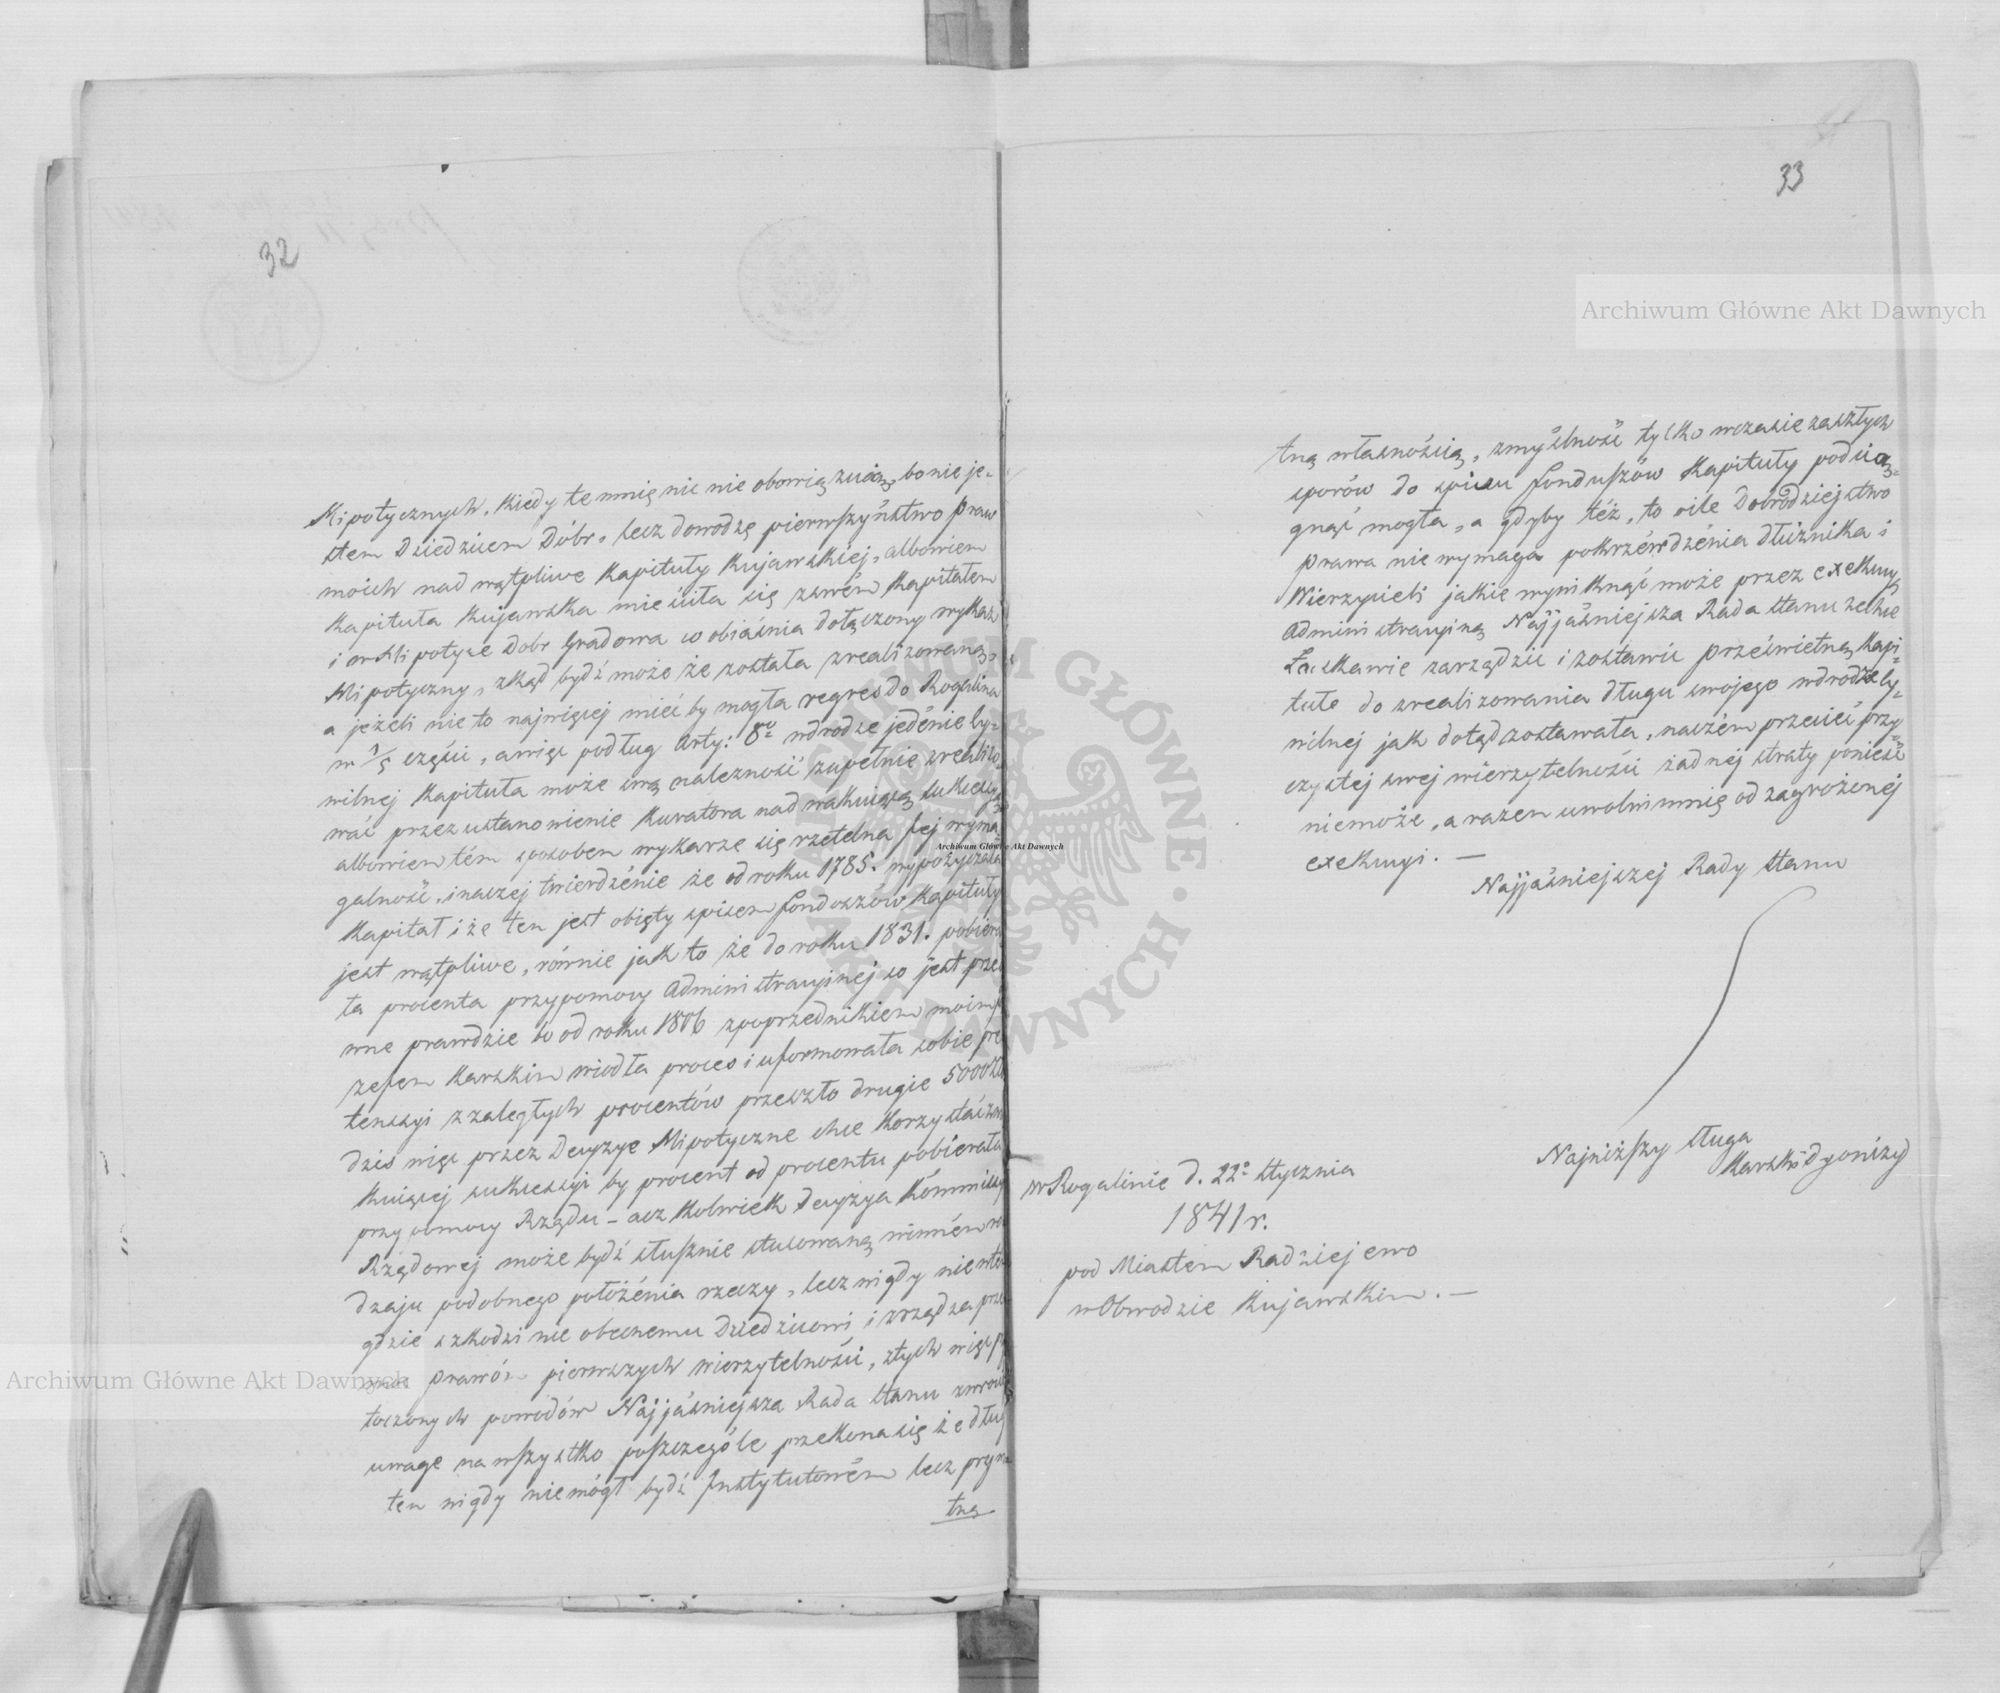 32
Hipotycznych, kiedy te mnię nic nie obowiązuiąc, bo nie je-
stem Dziedzicem Dóbr, lecz dowodzę pierwszyństwo praw
moich nad wątpliwe Kapituły Kujawskiej, albowiem
Kapituła Kujawska mieściła się zswém Kapitałem
i w Hipotyce Dobr Gradowa co obiaśnia dołączony wykaz
Hipotyczny, zkąd bydź może że została zrealizowaną,
a jeżeli nie to najwięcej mieć by mogła regres do Rogalina
w 1/5 części, a więc podług Arty: 8º wdrodze jedénie Cy-
wilnej Kapituła może swą należność zupełnie zrealizo-
wać przez ustanowienie Kuratora nad wakuiącą sukcessyą
albowiem tém sposobem wykarze się rzetelna Jej wyma-
galność, inaczej twierdzénie że od roku 1785. wypożyczała
Kapitał i że ten jest obięty spisem fonduszów Kapituły
jest wątpliwe, równie jak to że do roku 1831. pobiera
ta procenta przypomocy Administracyjnej co jest prze
wne prawdzie bo od roku 1806 zpoprzednikiem moim
zefem Karskim wiodła proces i uformowała sobie pre
tensyi z zaległych procentów przeszło drugie 5000 Zł
dziś więc przez Decyzye Hipotyczne chce korzystać zwa
kuiącej sukcessyi by procent od procentu pobierała
przypomocy Rządu – acz kolwiek Decyzya Kommissyi
Rządowej może bydź słusznie stosowaną winném ro
dzaju podobnego położénia rzeczy, lecz nigdy nie wte
gdzie szkodzi nie obecnemu Dziedzicowi i zrządza prze
prawóm pierwszych wierzytelności, ztych więc p
toczonych powodów Najjaśniejsza Rada Stanu zwróci
uwagę na wszystko poszczególe przekona się że dług
ten nigdy niemógł bydź Instytutowém lecz pryw=
tną
33
tną własnością, zmyślność tylko wczasie zaszłych
sporów do spisu fonduszów Kapituły podcią=
gnąć mogła, a gdyby téż, to oile Dobrodziejstwo
prawa nie wymaga pokrzéwdzénia dłużnika i
Wierzycieli jakie wyniknąć może przez exekucyą
Administracyiną Najjaśniejsza Rada Stanu zechce
Łaskawie zarządzić i zostawić prześwietną Kapi=
tułe do zrealizowania długu swojego wdrodze Cy=
wilnej jak dotąd zostawała, naczém przecież przy
czystej swej wierzytelności żadnej straty ponieść
niemoże, a razem uwolni mnię od zagrożonej
exekucyi. —
Najjaśniejszej Rady Stanu
Najniższy sługa
Karski Dyonizy
w Rogalinie d. 22º Stycznia
1841 r.
pod Miastem Radziejewo
w Obwodzie Kujawskim. —
Archiwum Główne Akt Dawnych
Archiwum Główne Akt Dawnych
Archiwum Główne Akt Dawnych
ARCHIWUM GŁÓWNE AKT DAWNYCH